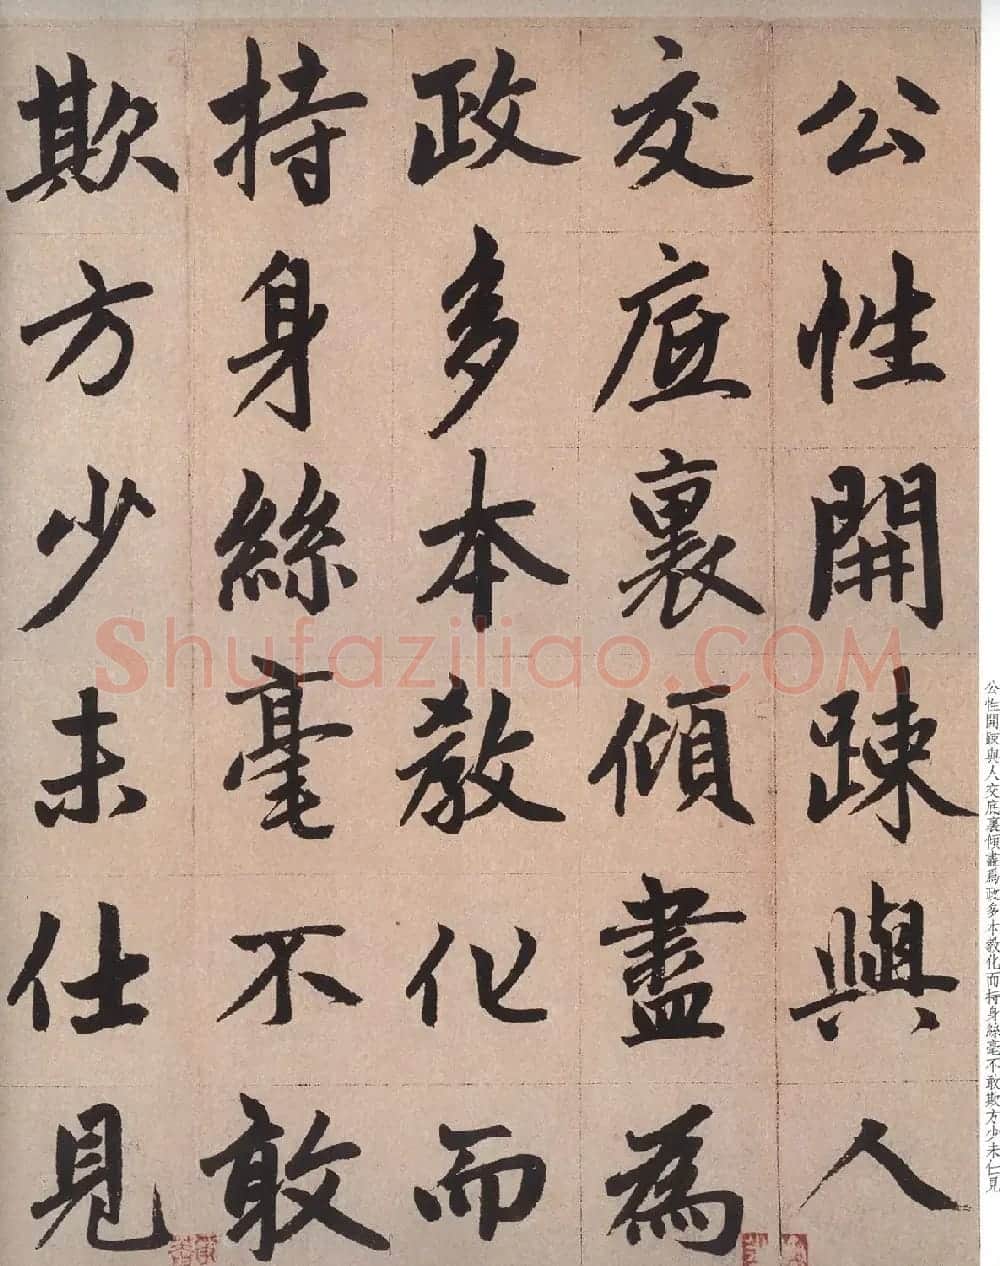 公性開踈與人
交底裏傾盡為
政多本教化而
持身絲毫不敢
欺方少未仕見
Shufaziliao.COM
公性開踈與人交底裏傾盡爲政多本教化而持身絲毫不敢欺方少未仁見